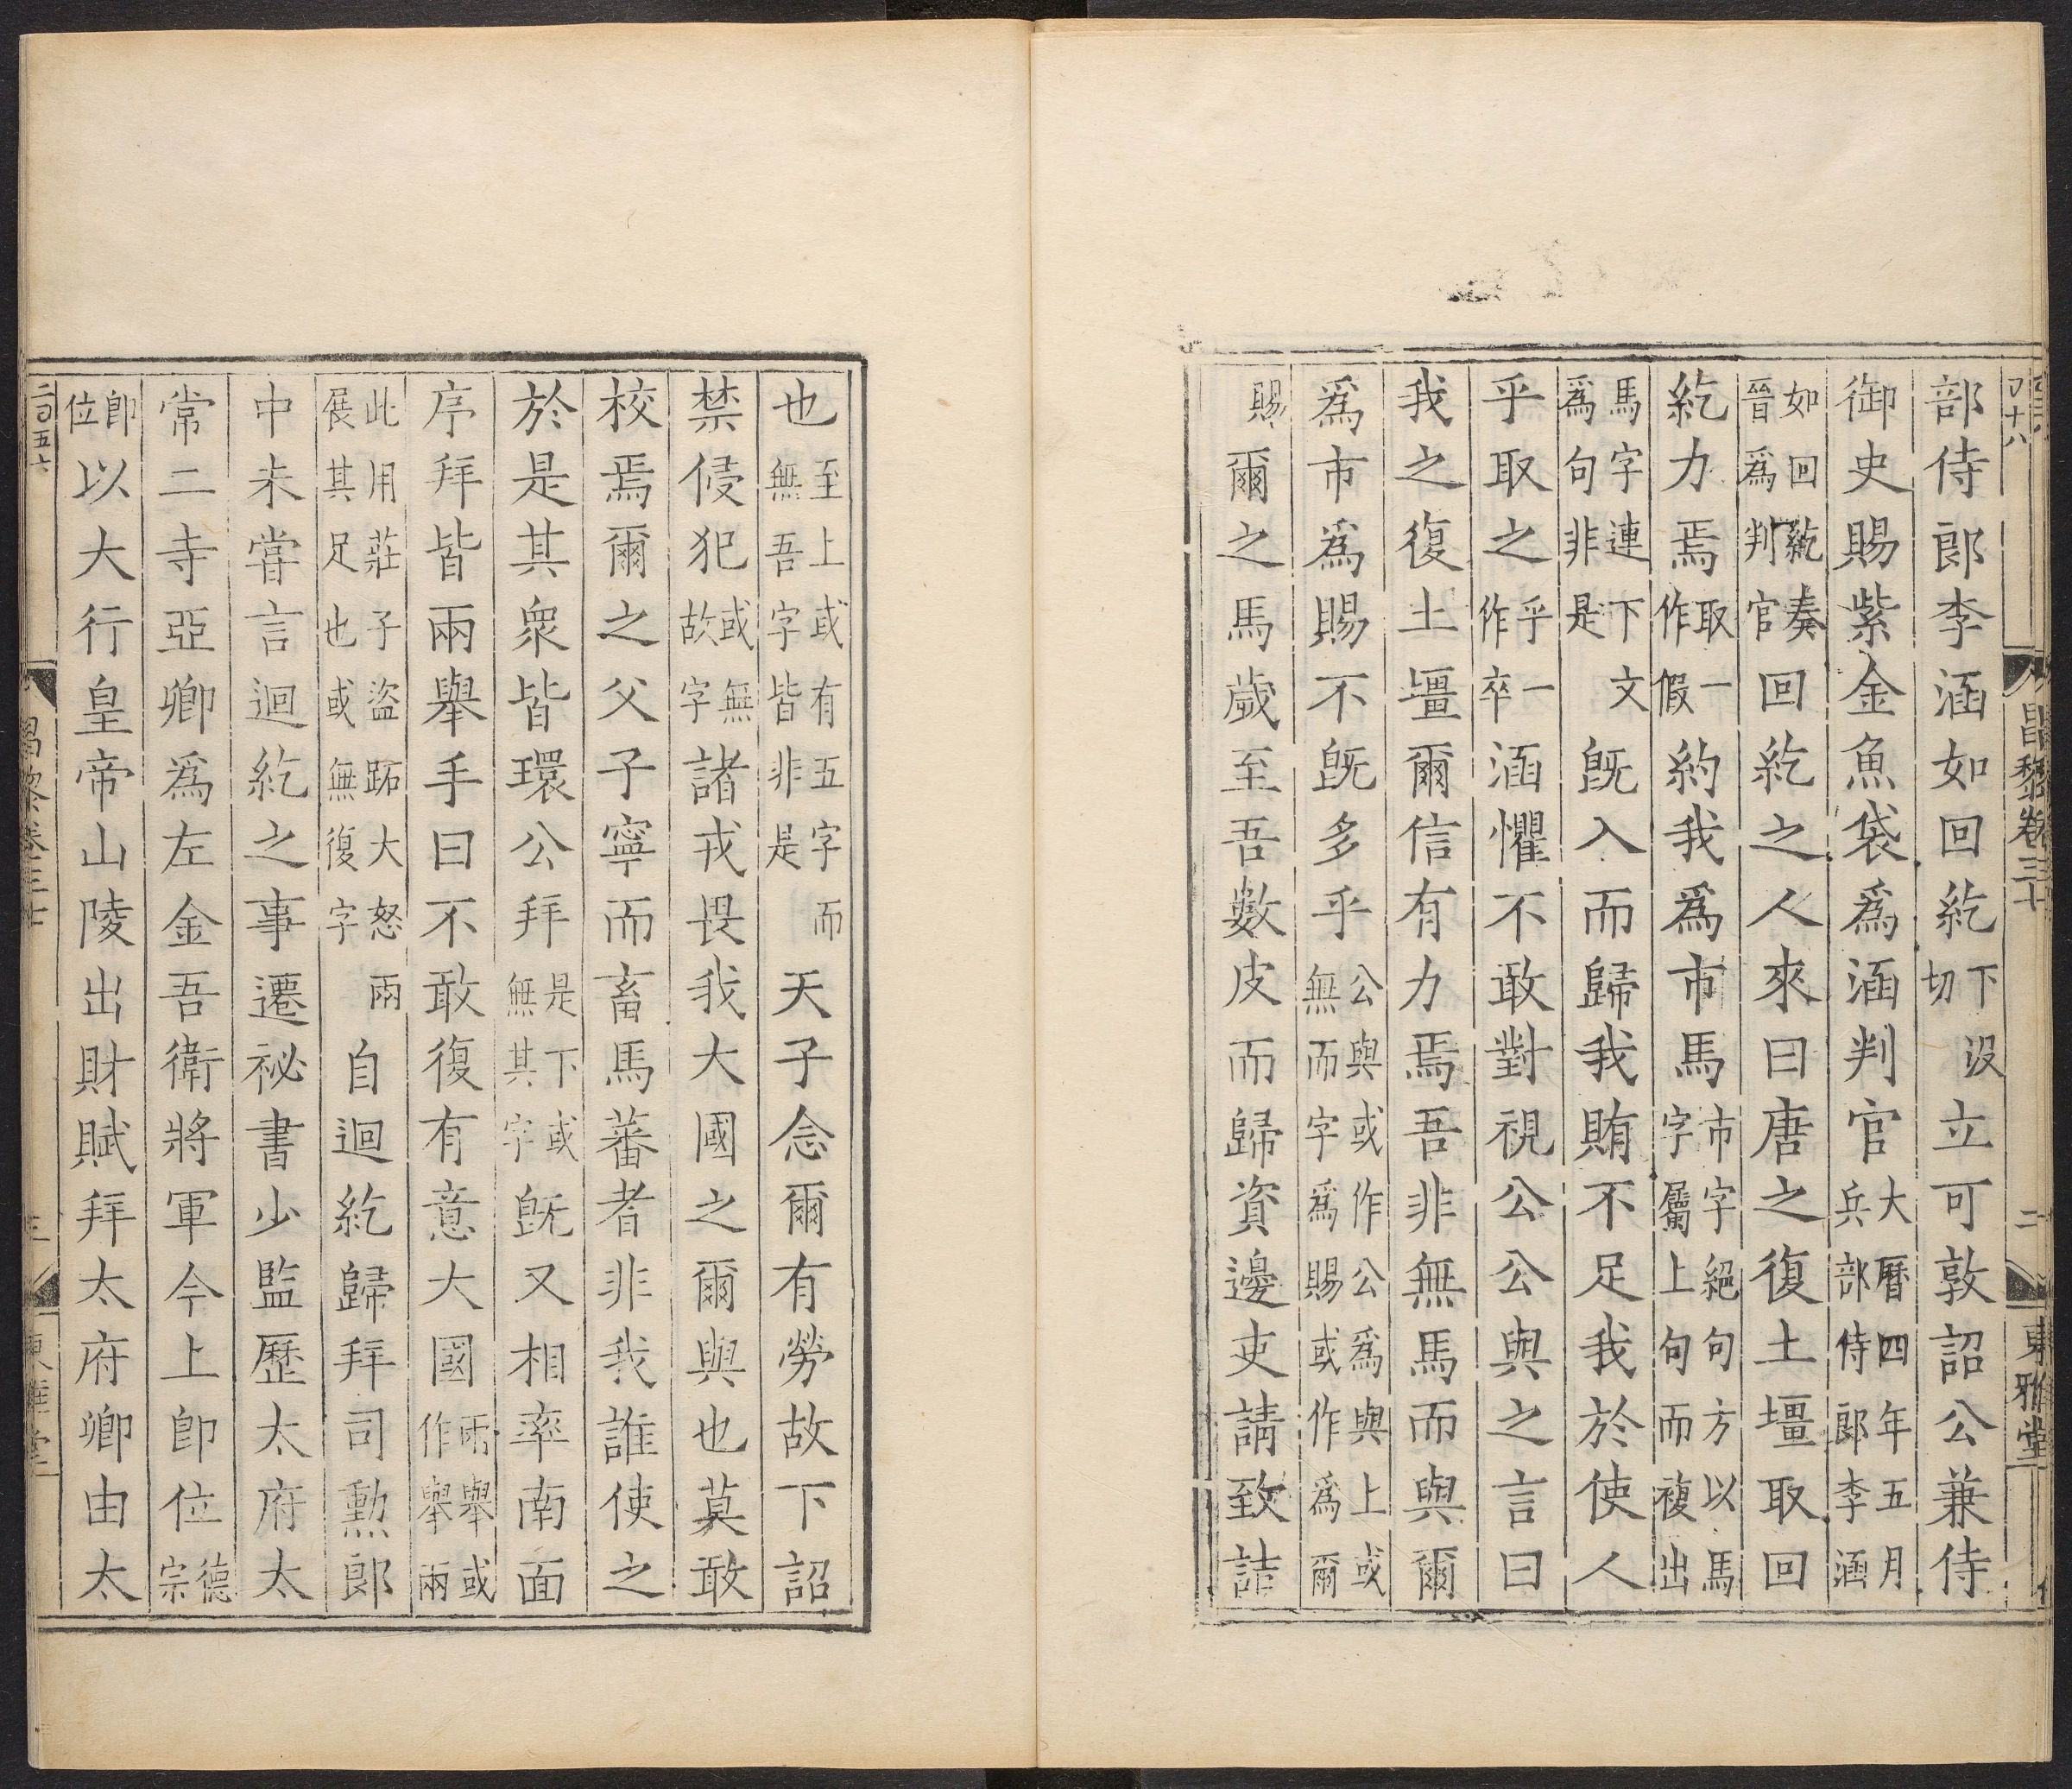 部侍郎李涵如回紇下没切立可敦詔公兼侍
御史賜紫金魚袋爲涵判官大曆四年五月兵部侍郎李涵
如回紇奏晉爲判官回紇之人來曰唐之復土壃取回
紇力焉取一作假約我爲市馬市字絕句方以馬字屬上句而複出
馬字連下文爲句非是旣入而歸我賄不足我於使人
乎取之乎一作卒涵懼不敢對視公公與之言曰
我之復土壃爾信有力焉吾非無馬而與爾
爲市爲賜不旣多乎公與或作公爲與上或無而字爲賜或作爲爾
賜爾之馬歲至吾數皮而歸資邊吏請致詰
也至上或有五字而無吾字皆非是天子念爾有勞故下詔
禁侵犯或無故字諸戎畏我大國之爾與也莫敢
校焉爾之父子寧而畜馬蕃者非我誰使之
於是其衆皆環公拜是下或無其字旣又相率南面
序拜皆兩舉手曰不敢復有意大國兩舉或作舉兩
此用莊子盜跖大怒兩展其足也或無復字自迴紇歸拜司勲郎
中未甞言迴紇之事遷祕書少監歷太府太
常二寺亞卿爲左金吾衛將軍今上卽位德宗
卽位以大行皇帝山陵出財賦拜太府卿由太
昌黎卷三十
二
東雅堂
三